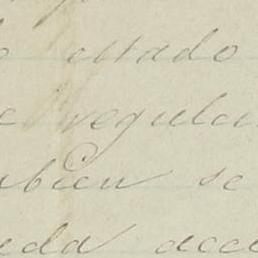 o estado
e regula
mbien se
eda acce